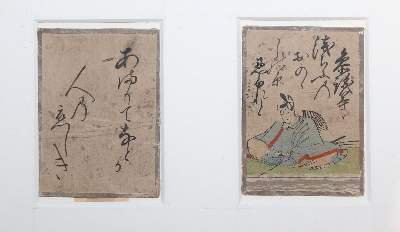 参議等
浅ちふの
おのゝ
しの原
忍ふれと
あまりてなとか
人の
恋しき